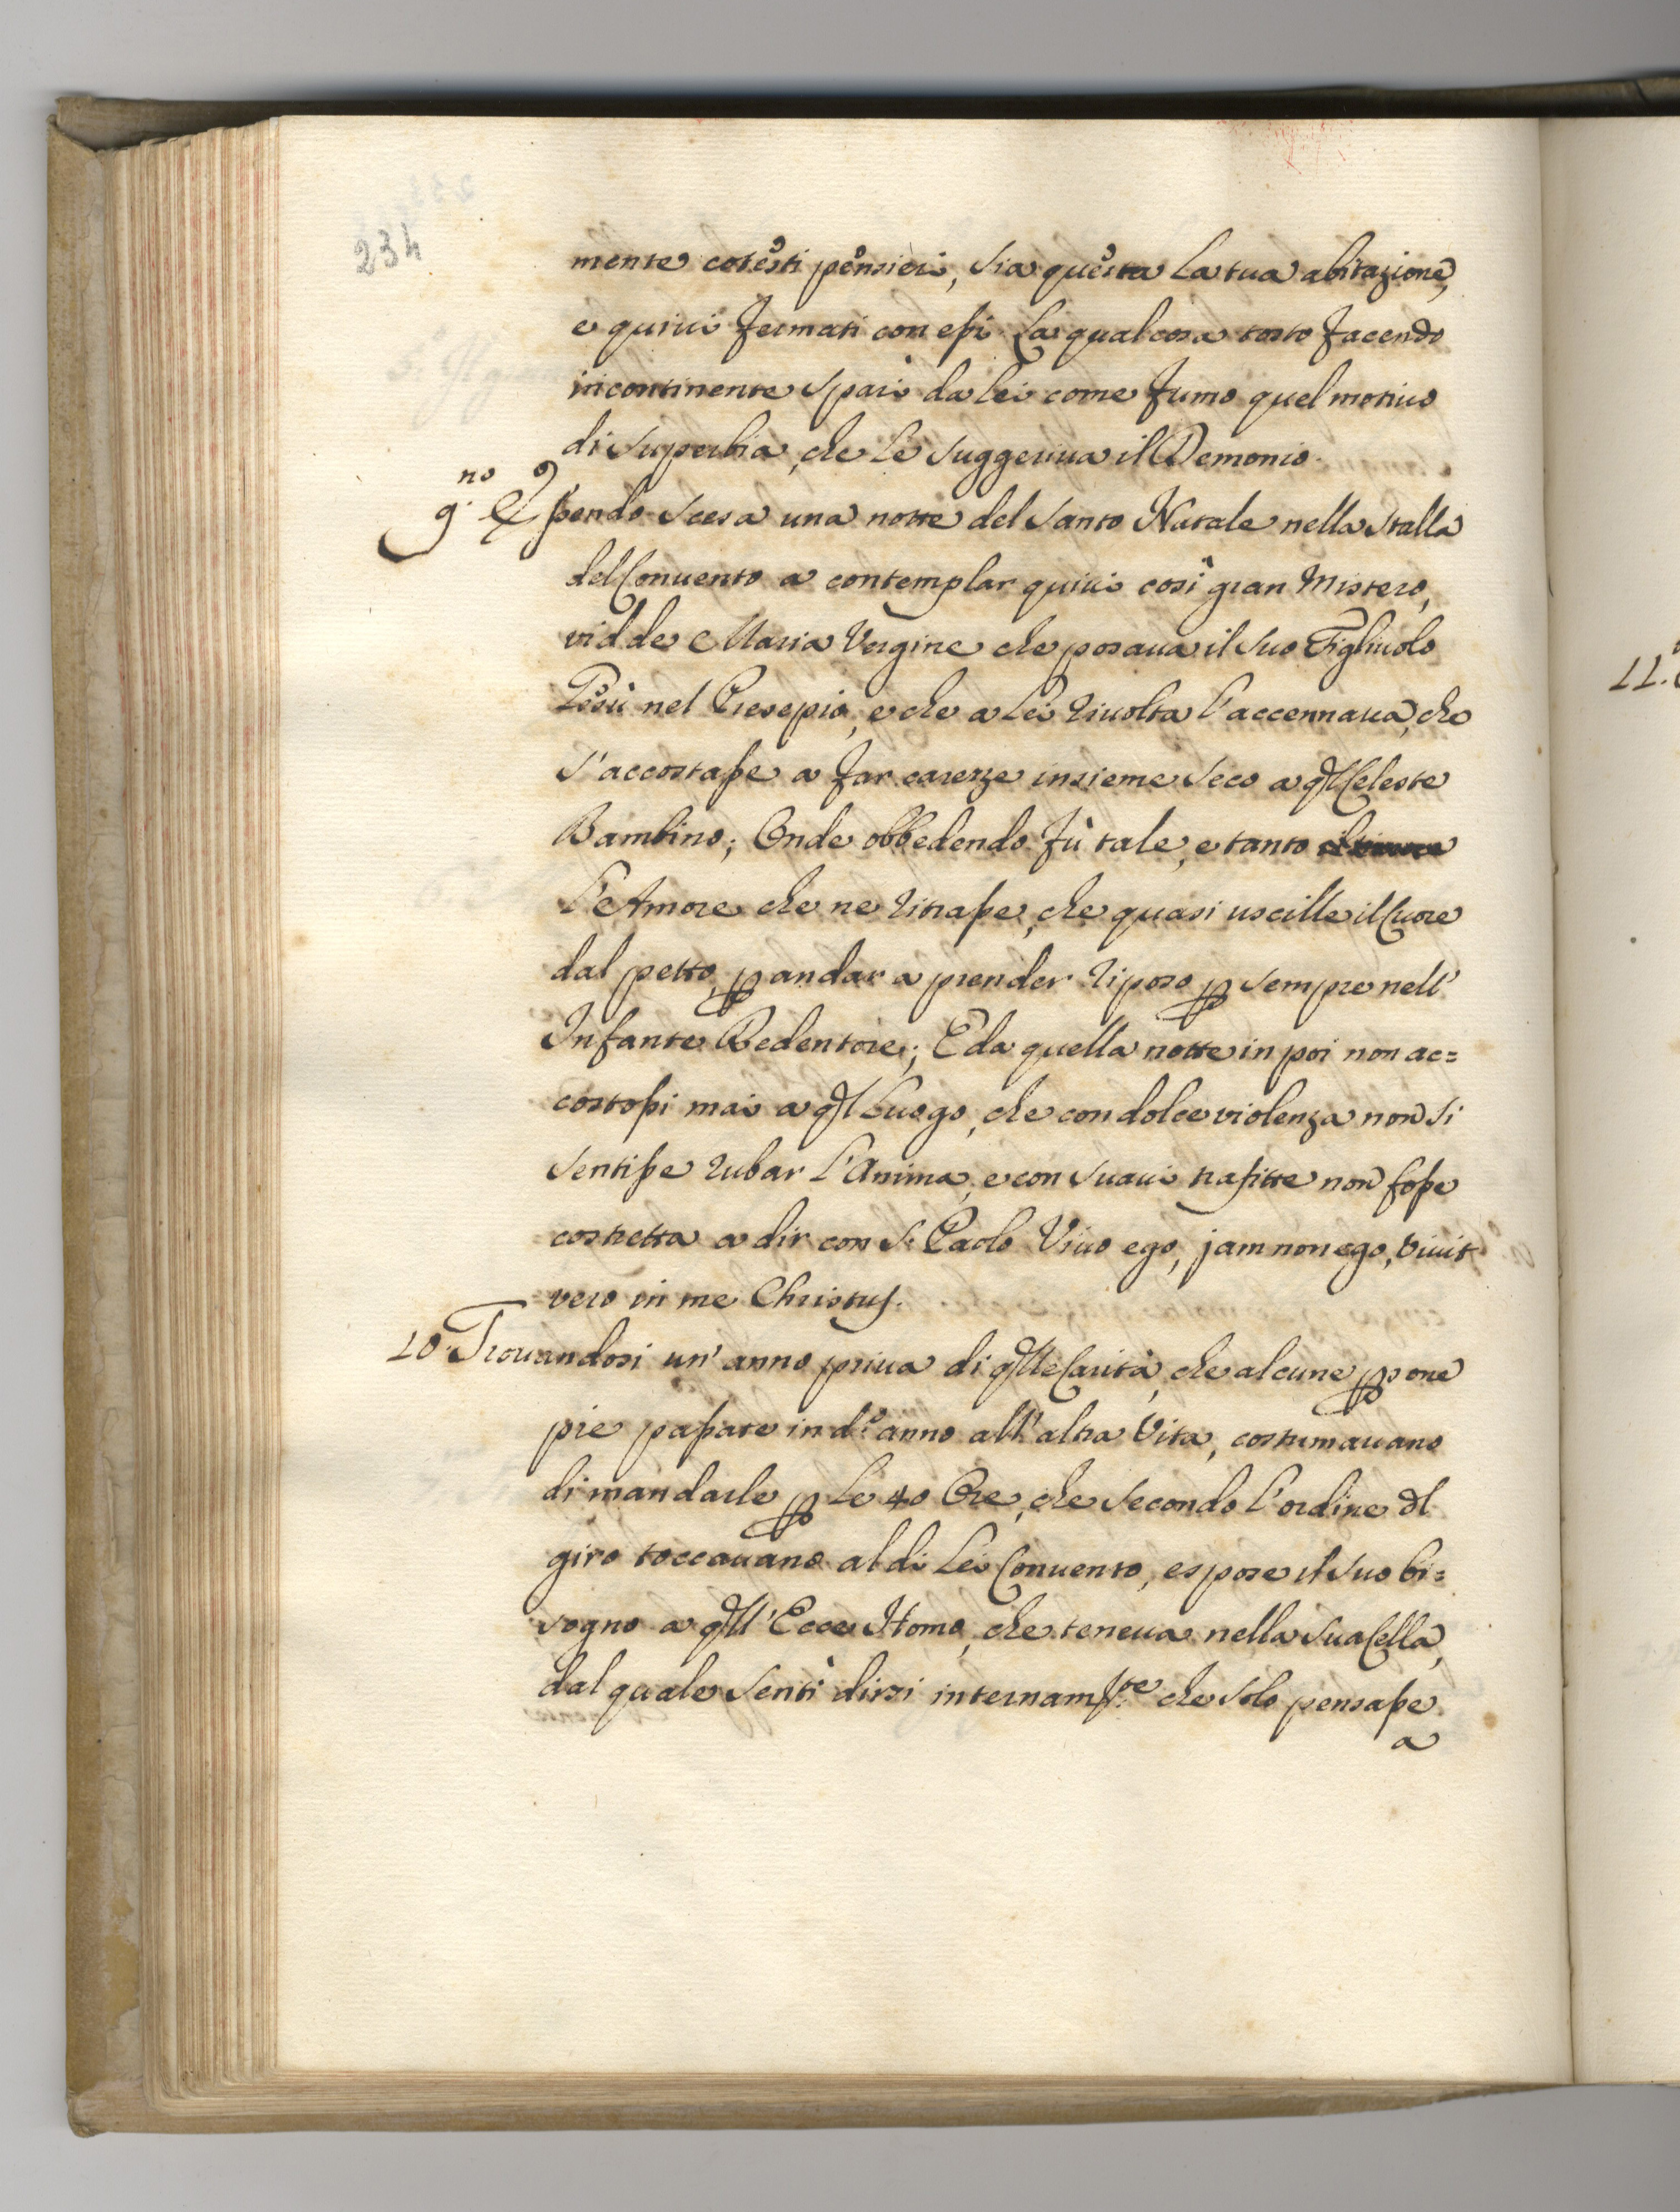 234
mente cotesti pensieri, sia questa la tua abitazione,
e quivi fermati con essi. La qual cosa tosto facendo
incontinente sparì da lei come fumo quel motivo
di superbia, che le suggeriva il Demonio.
9.no Essendo scesa una notte del Santo Natale nella stalla
del Convento a contemplar quivi così gran Mistero,
vidde Maria Vergine che posava il suo Figliuolo
Gesù nel Presepio, e che a lei rivolta l'accennava, che
s'accostasse a far carezze insieme seco a qll Celeste
Bambino; Onde obbedendo fù tale, e tanto
l'Amore che ne ritrasse, che quasi uscille il Cuore
dal petto, p andar a prender riposo p sempre nell'
Infante Redentore; E da quella notte in poi non ac=
costossi mai a qll luogo, che con dolce violenza non si
sentisse rubar l'Anima, e con suavi trafitte non fosse
costretta a dir con S. Paolo Vivo ego, jam non ego, vivit
vero in me Christus.
10. Trovandosi un' anno priva di qlle Carità, che alcune psone
pie passate in d.o anno all' altra Vita, costumavano
di mandarle p le 40 Ore, che secondo l'ordine dl
giro toccavano al di lei Convento, espose il suo bi=
sogno a qll' Ecce Homo, che teneva nella sua Cella,
dal quale sentì dirsi internam.te che solo pensasse
a
11.